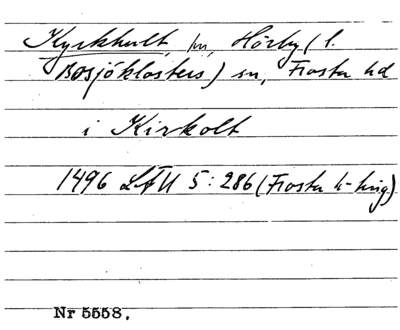 Kyrkhult, hn, Hörby (l.
Bosjöklosters) sn, Frosta hd
i Kirkolt
1496 LÄU 5:286 (Frosta h-ting)
Nr 5558.